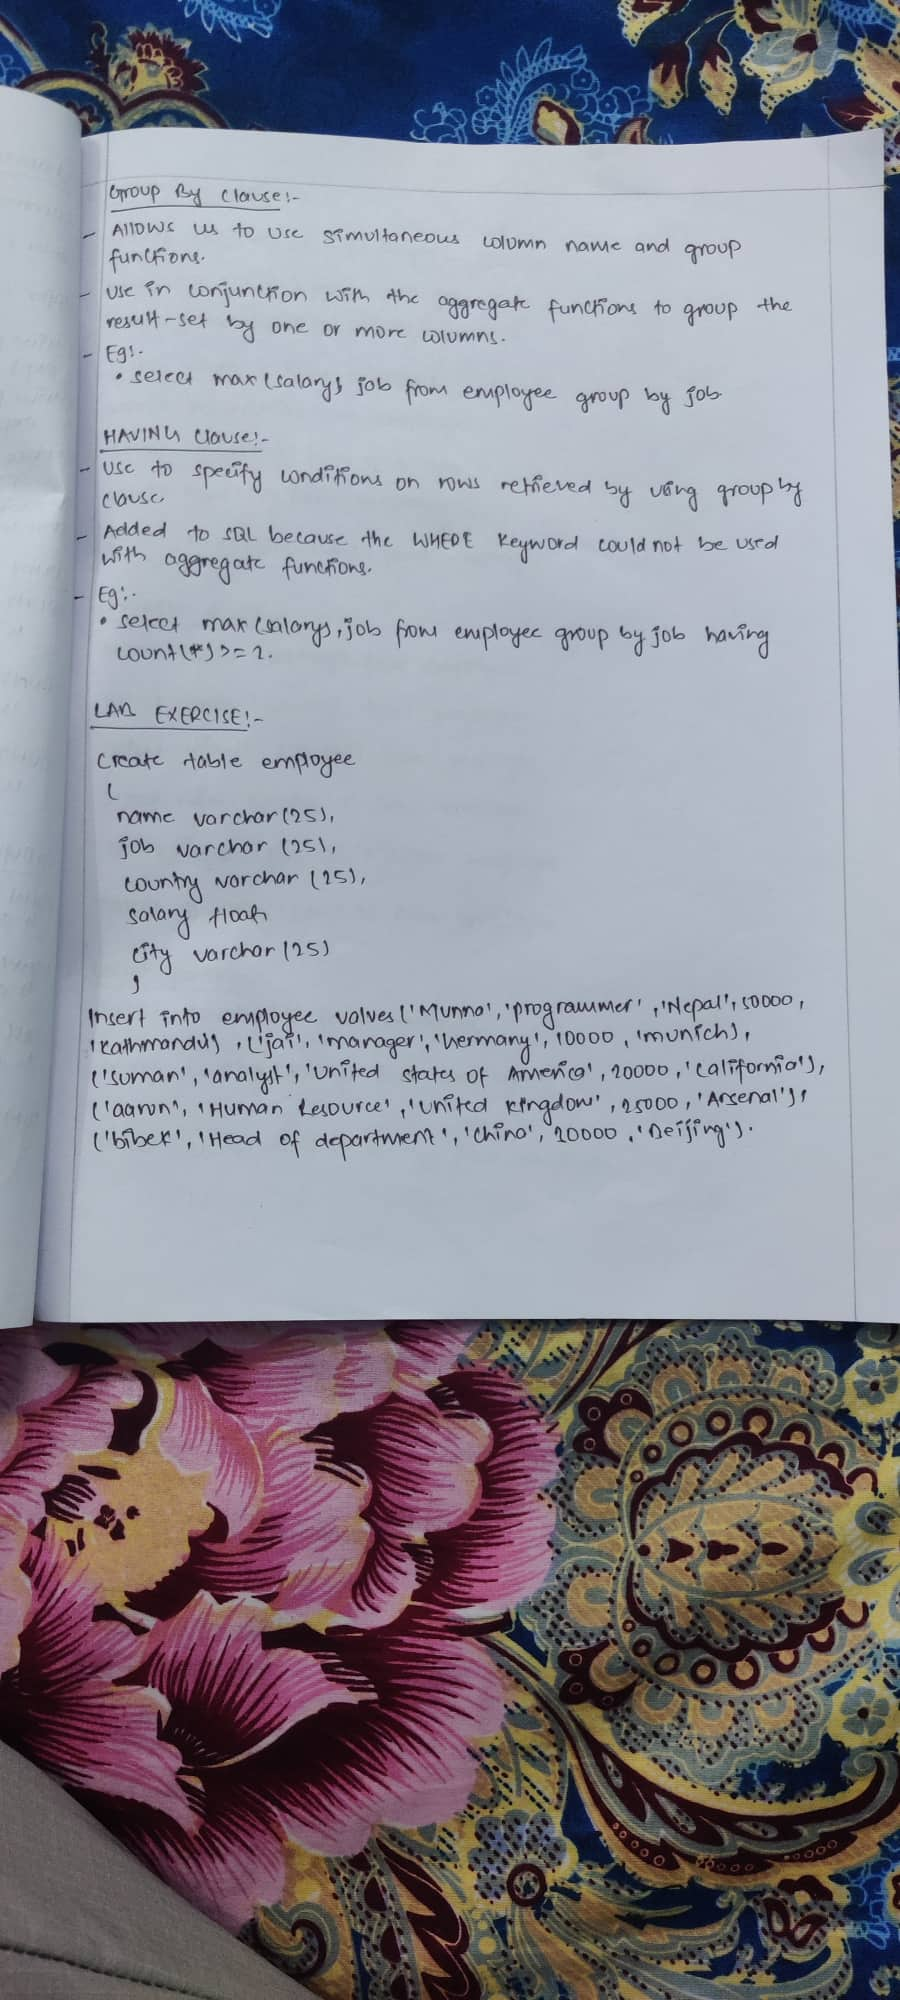 Group By Clause:-
- Allows us to use simultaneous column name and group
functions.
- Use in conjunction with the aggregate functions to group the
result-set by one or more columns.
- Eg:-
• select max(salary), job from employee group by job
HAVING Clause:-
- Use to specify conditions on rows retrieved by using group by
clause.
- Added to SQL because the WHERE keyword could not be used
with aggregate functions.
- Eg:-
• select max(salary), job from employee group by job having
count(*) >= 2.
LAB EXERCISE:-
Create table employee
(
name varchar(25),
job varchar (25),
country varchar (25),
salary float,
city varchar (25)
)
Insert into employee values ('Munna', 'programmer', 'Nepal', 50000,
'kathmandu'), ('jai', 'manager', 'Germany', 10000, 'munich'),
('suman', 'analyst', 'United states of America', 20000, 'california'),
('aarun', 'Human Resource', 'United kingdow', 25000, 'Arsenal'),
('bibek', 'Head of department', 'China', 20000, 'Beijing').